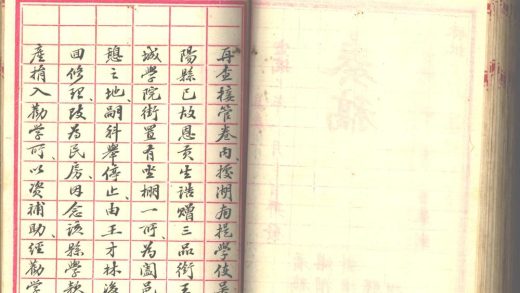 再查接管卷内、據湖南提學使吳
陽縣已故恩貢生誥贈三品銜王
城學院街置有坐棚一所、為闔邑
憩之地、嗣科舉停止、由王才林
回修理、改為民房、因念該縣學款
產捐入勸學所、以資補助、經勸學